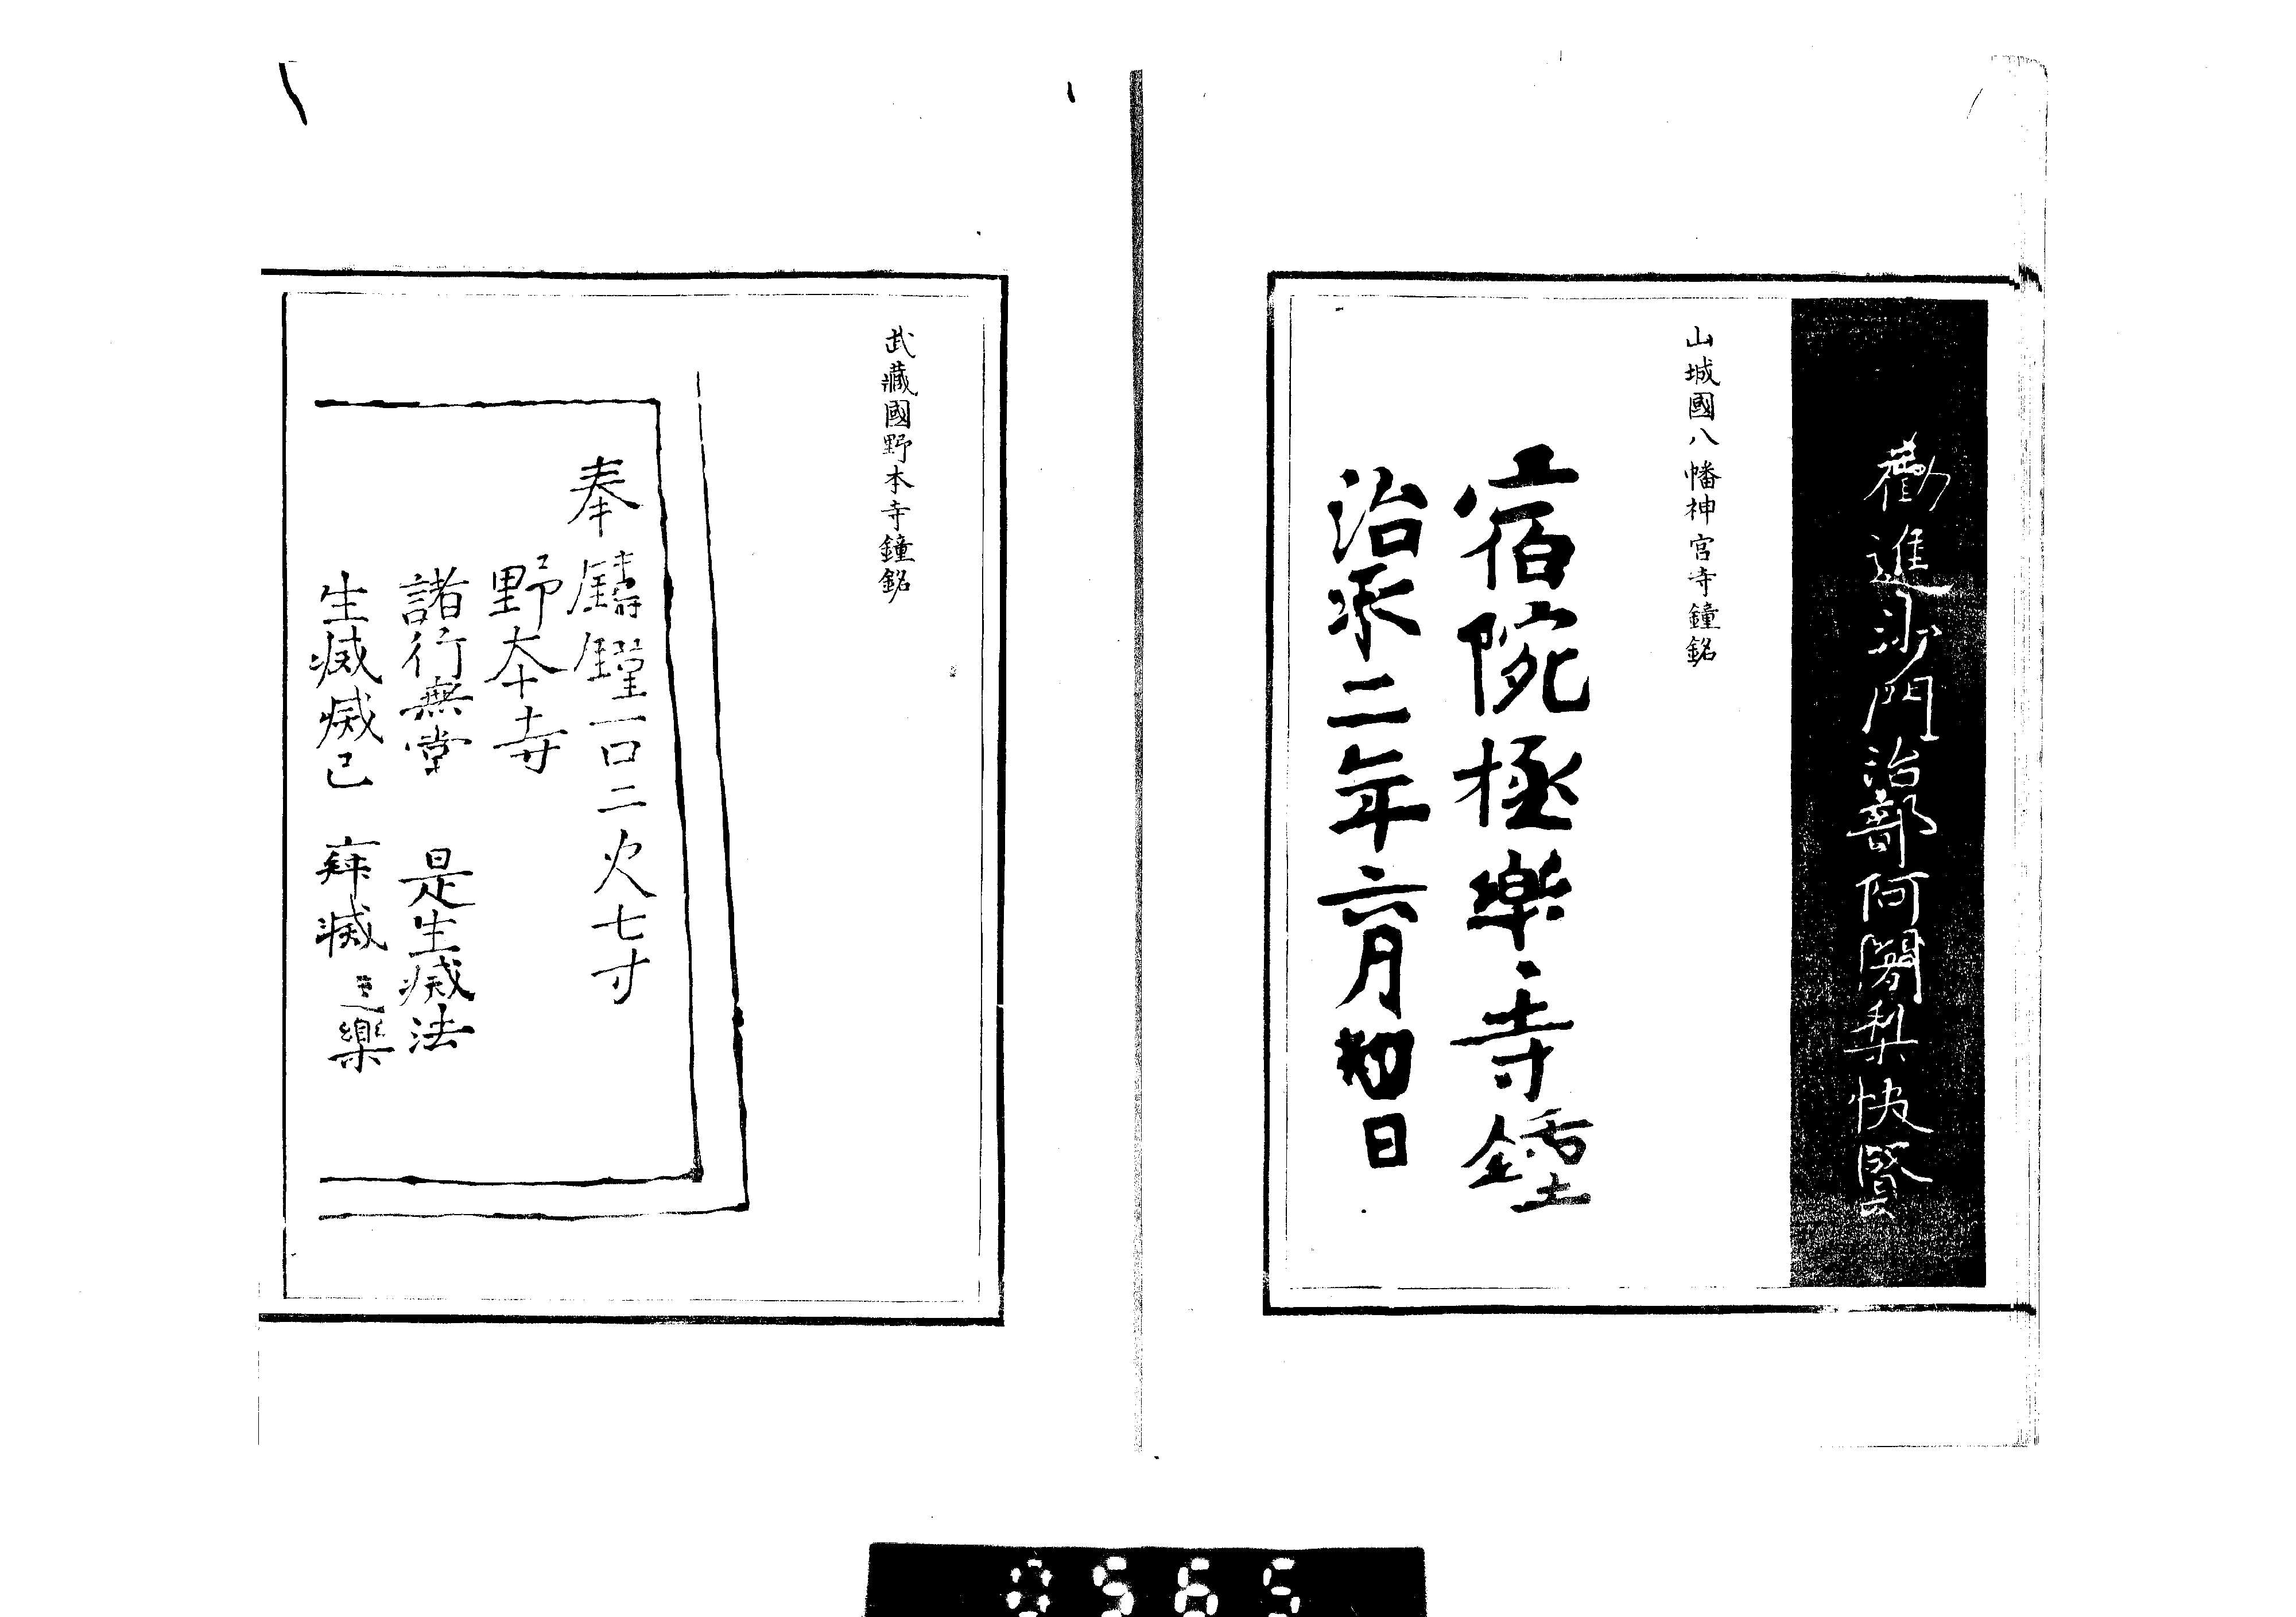 勸進沙門治部阿闍梨快賢
山城國八幡神宮寺鐘銘
宿院極樂寺鐘
治承二年六月初四日
武藏國野本寺鐘銘
奉鑄鐘一口二尺七寸
野本寺
諸行無常　是生滅法
生滅滅已　寂滅為樂
0565